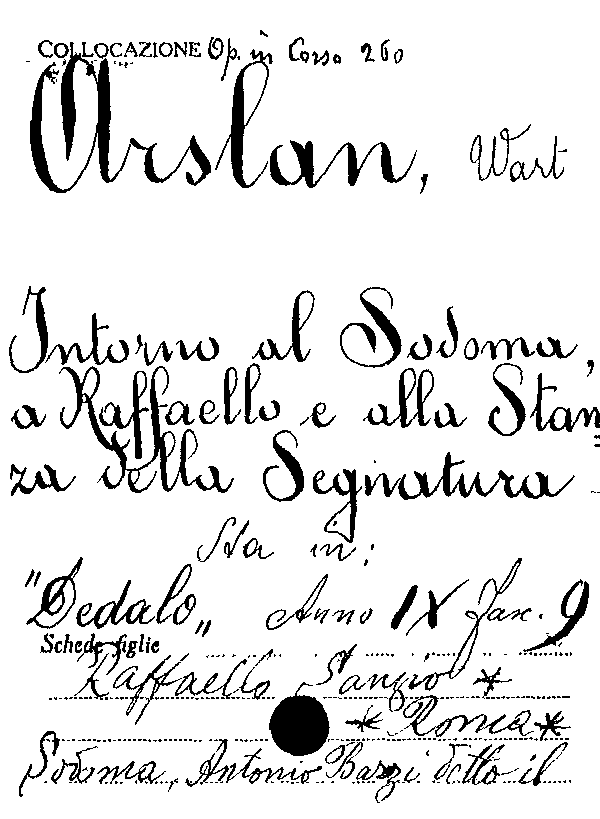 COLLOCAZIONE Op. in Corso 260
Arslan, Wart
Intorno al Sodoma,
a Raffaello e alla Stan=
za della Segnatura
Sta in:
"Dedalo„ Anno IX Fasc. 9
Schede figlie
Raffaello Sanzio *
* Roma *
Sodoma, Antonio Bazzi detto il